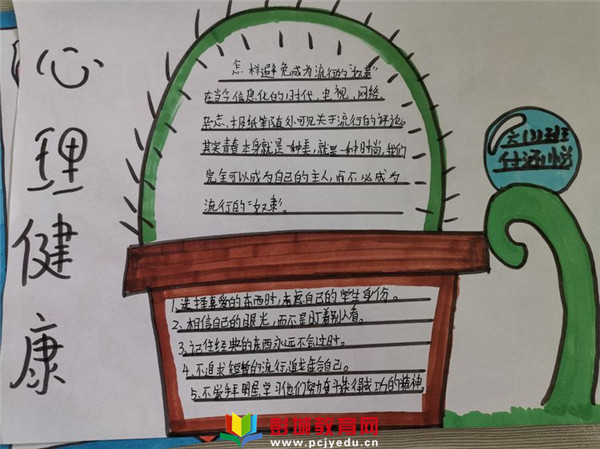 心理健康
怎样避免成为流行的"奴隶"
在当今信息化的时代,电视、网络、
杂志、报纸等随处可见关于流行的评论。
其实青春本身就是一种美,就是一种时尚,我们
完全可以成为自己的主人,而不必成为
流行的"奴隶"。
六(1)班
1、选择喜爱的东西时,考虑自己的学生身份。
2、相信自己的眼光,而不是盯着别人看。
3、记住经典的东西永远不会过时。
4、不追求短暂的流行,适合自己。
5、不崇拜明星,学习他们努力奋斗获得成功的精神
彭城教育网
www.pcjyedu.cn